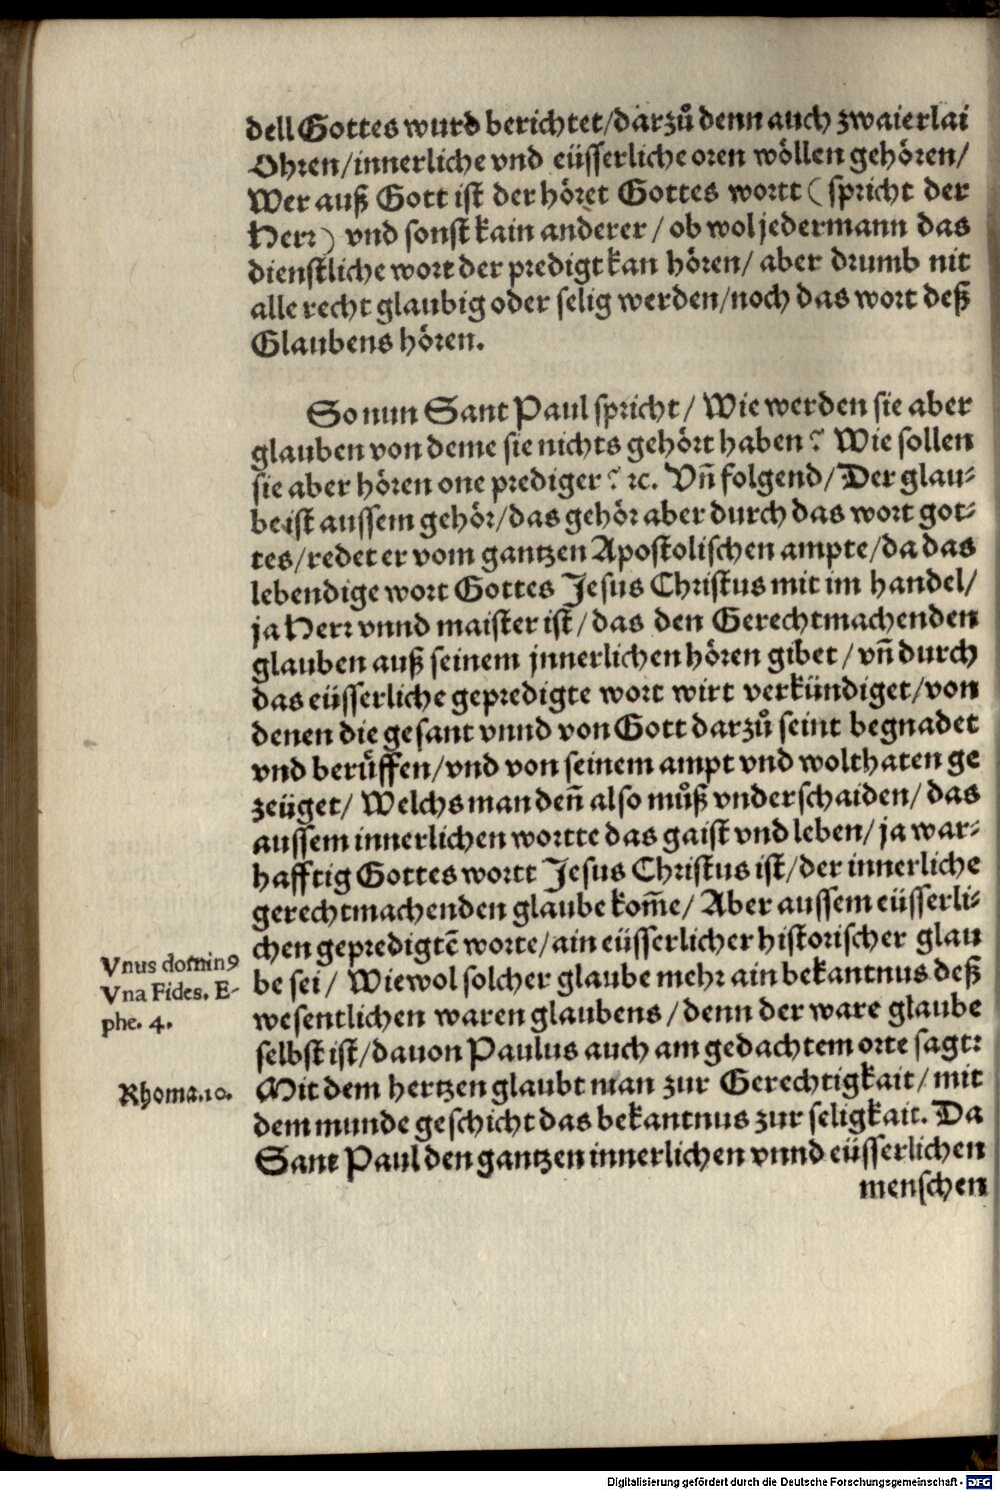 dell Gottes wurd berichtet/darzuͦ denn auch zwaierlai
Ohren/innerliche vnd eüsserliche oren wöllen gehören/
Wer auß Gott ist der höret Gottes wortt (spricht der
Herr) vnd sonst kain anderer/ob wol jedermann das
dienstliche wort der predigt kan hören/aber drumb nit
alle recht glaubig oder selig werden/noch das wort deß
Glaubens hören.
So nun Sant Paul spricht/Wie werden sie aber
glauben von deme sie nichts gehört haben? Wie sollen
sie aber hören one prediger? ꝛc. Vñ folgend/Der glau-
be ist aussem gehör/das gehör aber durch das wort got-
tes/redet er vom gantzen Apostolischen ampte/da das
lebendige wort Gottes Jesus Christus mit im handel/
ja Herr vnnd maister ist/das den Gerechtmachenden
glauben auß seinem jnnerlichen hören gibet/vñ durch
das eüsserliche gepredigte wort wirt verkündiget/von
denen die gesant vnnd von Gott darzuͦ seint begnadet
vnd berüffen/vnd von seinem ampt vnd wolthaten ge
zeüget/Welchs man deñ also muͦß vnderschaiden/das
aussem innerlichen wortte das gaist vnd leben/ja war-
hafftig Gottes wortt Jesus Christus ist/der innerliche
gerechtmachenden glaube kom̃e/Aber aussem eüsserli-
chen gepredigtẽ worte/ain eüsserlicher historischer glau
be sei/Wiewol solcher glaube mehr ain bekantnus deß
wesentlichen waren glaubens/denn der ware glaube
selbst ist/dauon Paulus auch am gedachtem orte sagt:
Mit dem hertzen glaubt man zur Gerechtigkait/mit
dem munde geschicht das bekantnus zur seligkait. Da
Sant Paul den gantzen innerlichen vnnd eüsserlichen
menschen
Vnus dominꝰ
Vna Fides. E-
phe. 4.
Rhoma.10.
Digitalisierung gefördert durch die Deutsche Forschungsgemeinschaft - DFG